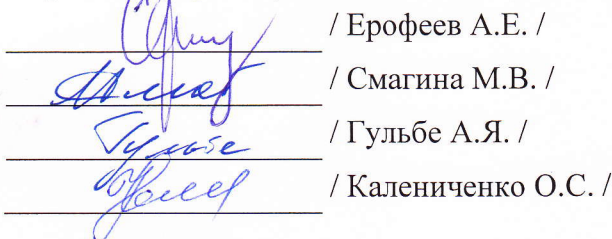 / Ерофеев А.Е. /
/ Смагина М.В. /
Гульбе / Гульбе А.Я. /
/ Калениченко О.С. /